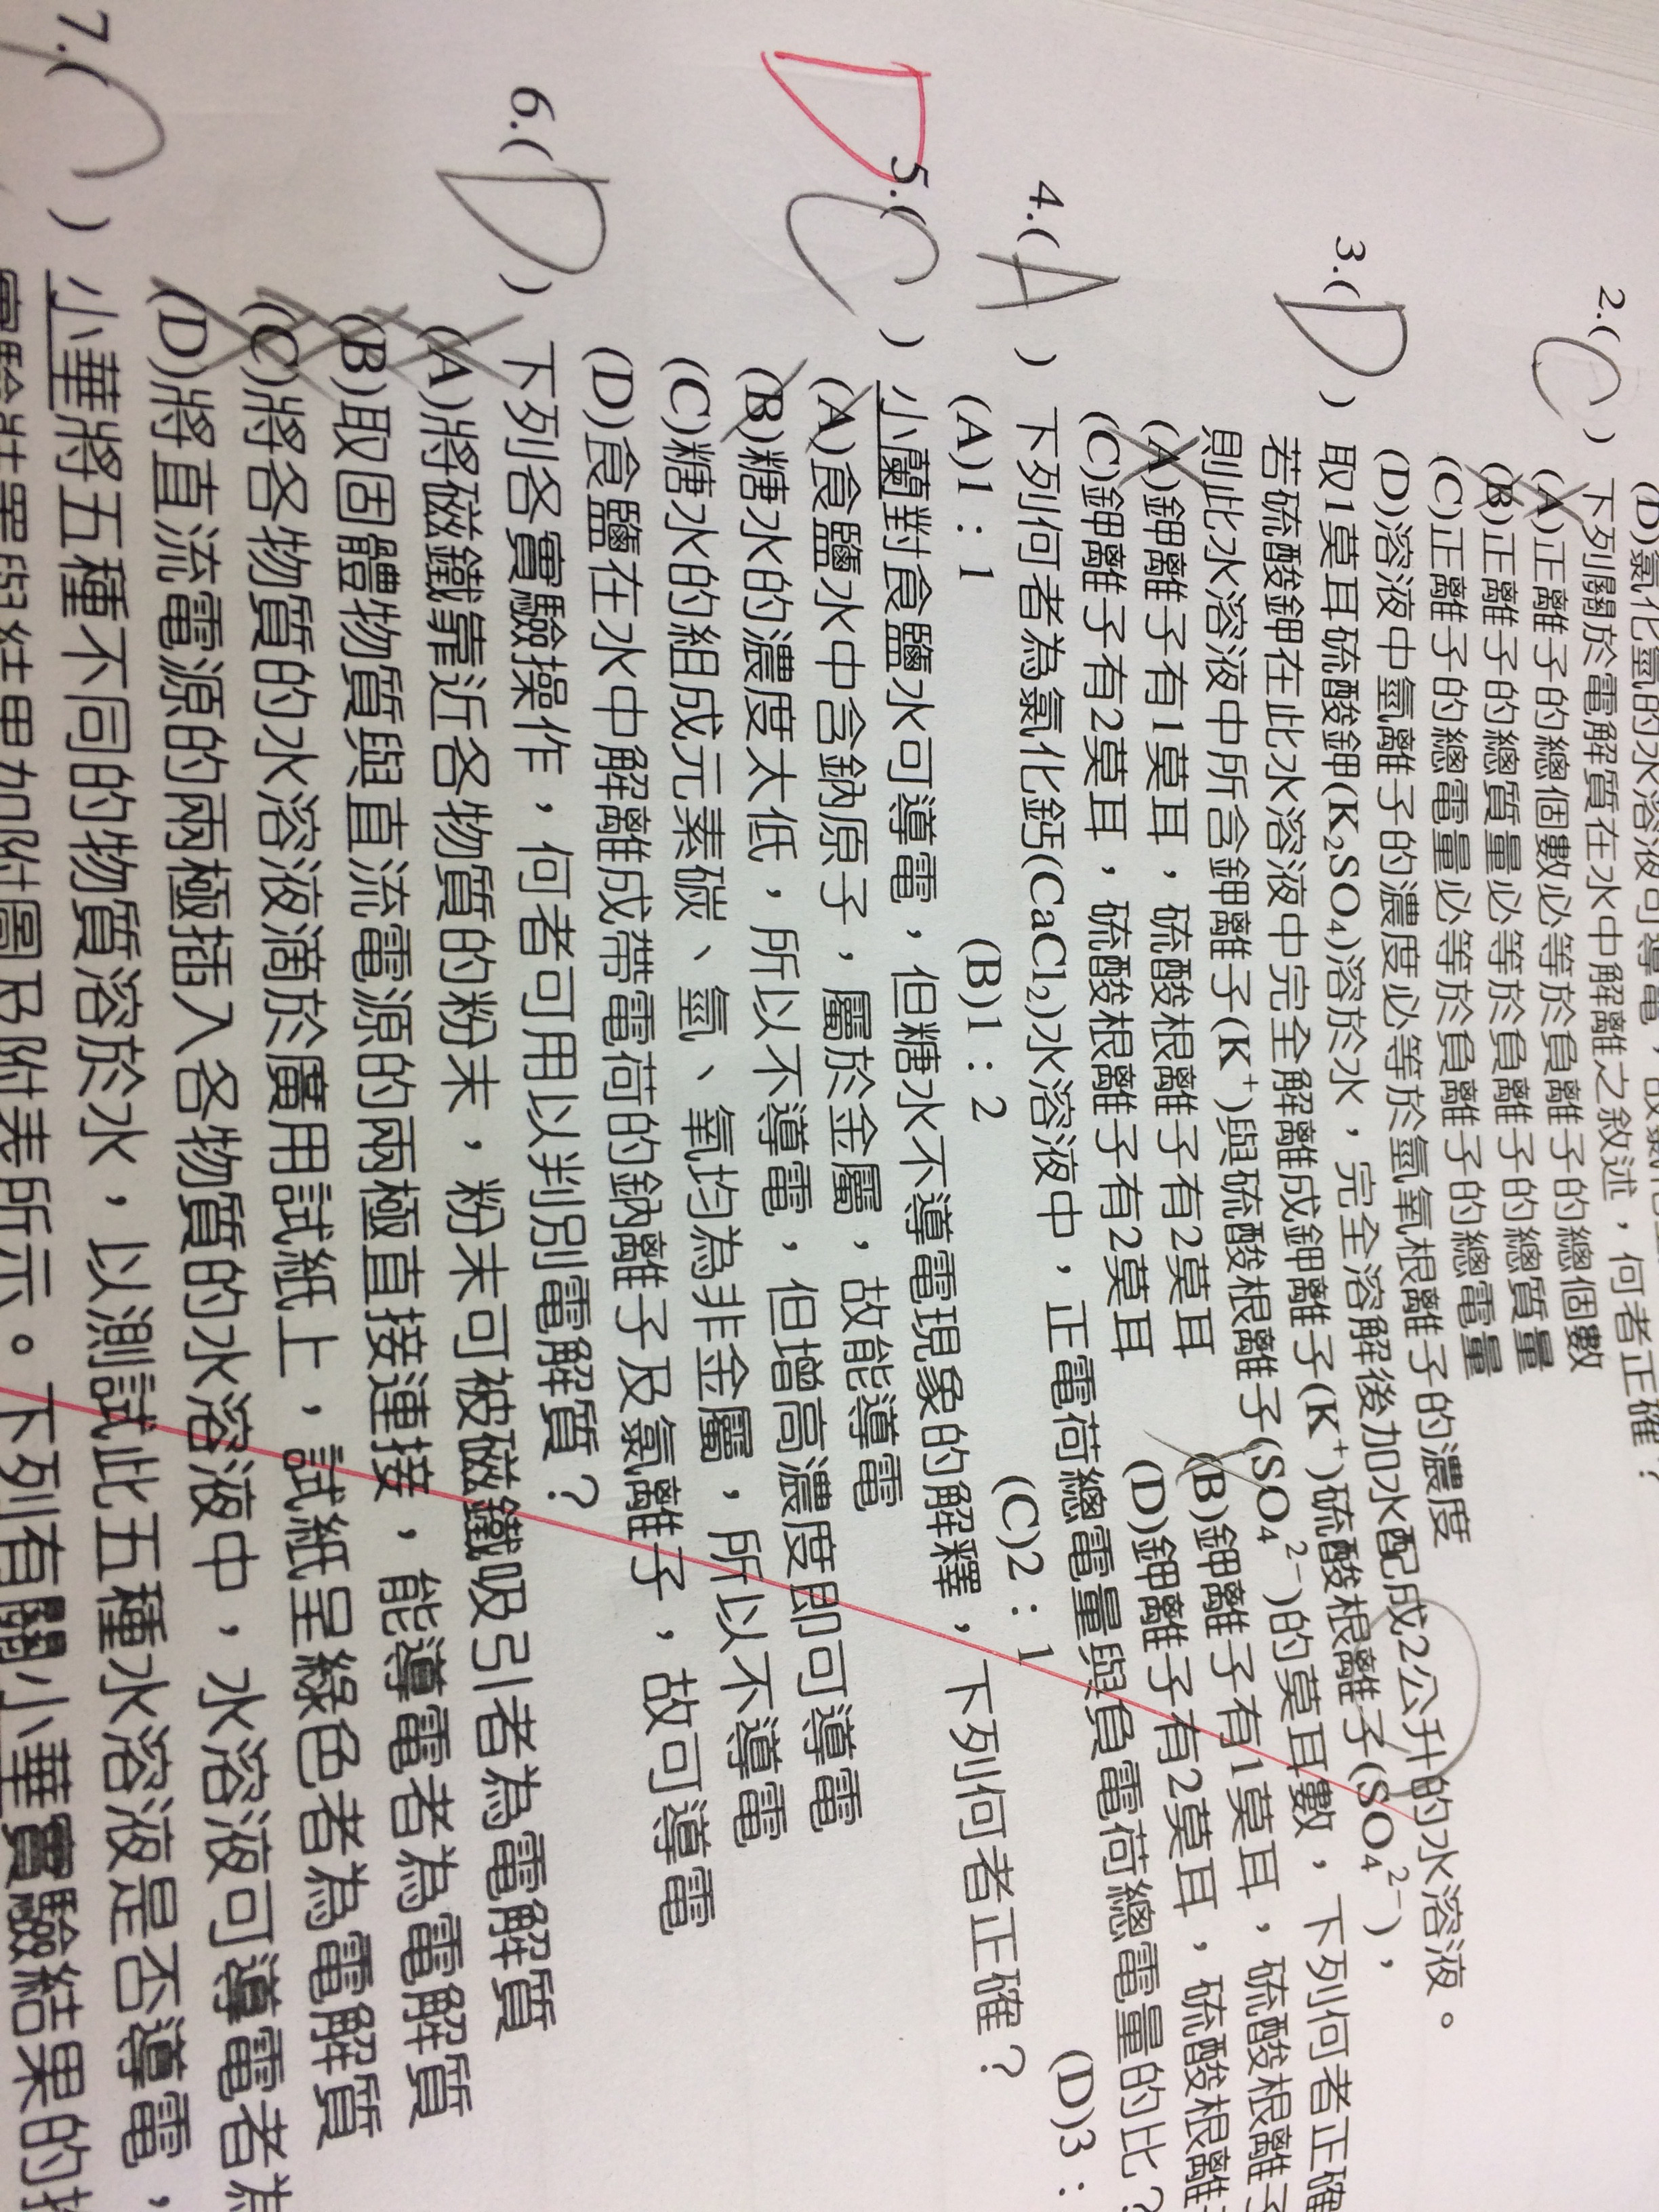 (D)氯化氫的水溶液可導電，
2.(C)下列關於電解質在水中解離之敘述，何者正確？
(A)正離子的總個數必等於負離子的總個數
(B)正離子的總質量必等於負離子的總質量
(C)正離子的總電量必等於負離子的總電量
(D)溶液中氫離子的濃度必等於氫氧根離子的濃度
3.(D)取1莫耳硫酸鉀(K₂SO₄)溶於水，完全溶解後加水配成2公升的水溶液。
若硫酸鉀在此水溶液中完全解離成鉀離子(K⁺)硫酸根離子(SO₄²⁻)，
則此水溶液中所含鉀離子(K⁺)與硫酸根離子(SO₄²⁻)的莫耳數，下列何者正確
(A)鉀離子有1莫耳，硫酸根離子有2莫耳 (B)鉀離子有1莫耳，硫酸根離子
(C)鉀離子有2莫耳，硫酸根離子有2莫耳 (D)鉀離子有2莫耳，硫酸根離
4.(A)下列何者為氯化鈣(CaCl₂)水溶液中，正電荷總電量與負電荷總電量的比？
(A)1：1 (B)1：2 (C)2：1 (D)3：
D
5.(C)小蘭對食鹽水可導電，但糖水不導電現象的解釋，下列何者正確？
(A)食鹽水中含鈉原子，屬於金屬，故能導電
(B)糖水的濃度太低，所以不導電，但增高濃度即可導電
(C)糖水的組成元素碳、氫、氧均為非金屬，所以不導電
(D)食鹽在水中解離成帶電荷的鈉離子及氯離子，故可導電
6.(D)下列各實驗操作，何者可用以判別電解質？
(A)將磁鐵靠近各物質的粉末，粉末可被磁鐵吸引者為電解質
(B)取固體物質與直流電源的兩極直接連接，能導電者為電解質
(C)將各物質的水溶液滴於廣用試紙上，試紙呈綠色者為電解質
(D)將直流電源的兩極插入各物質的水溶液中，水溶液可導電者為
7.(C)小華將五種不同的物質溶於水，以測試此五種水溶液是否導電，
實驗裝置與結果如附圖及附表所示。下列有關小華實驗結果的